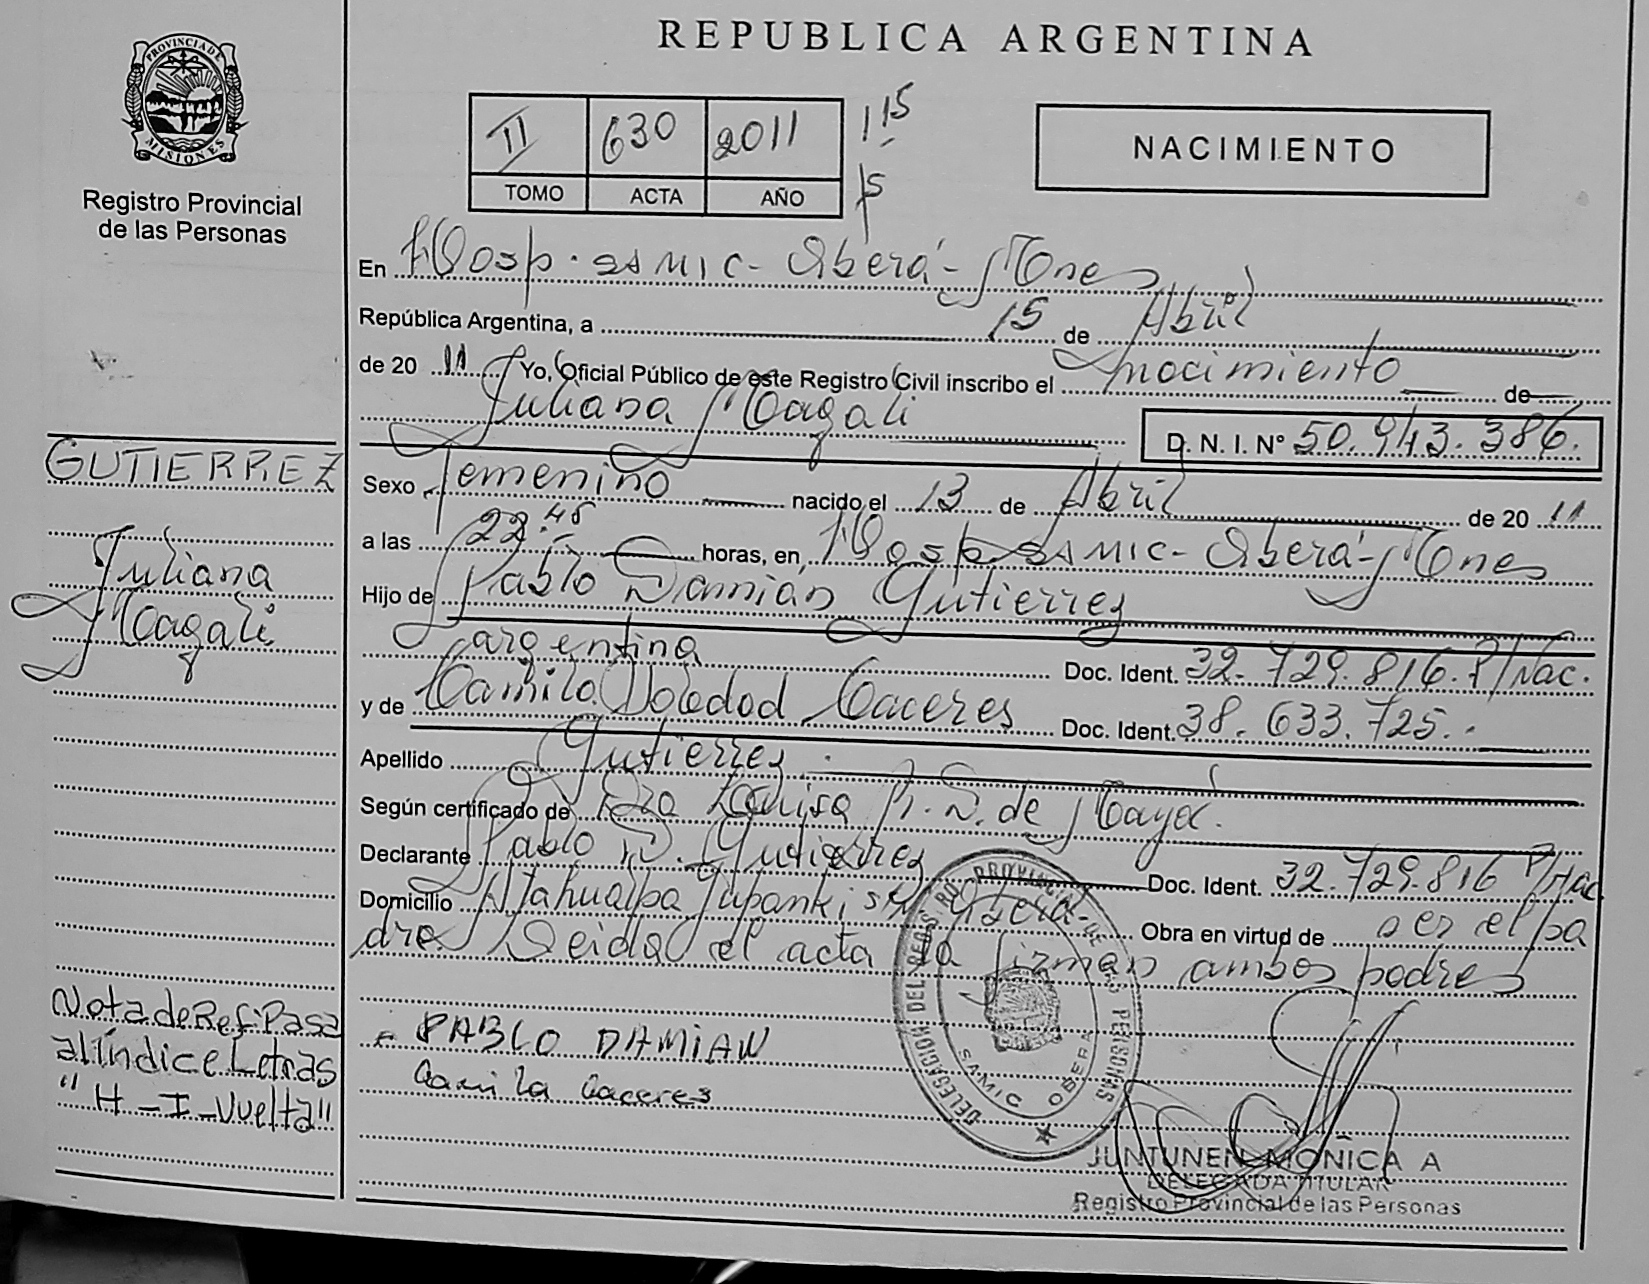 REPUBLICA ARGENTINA
PROVINCIA DE MISIONES
Registro Provincial
de las Personas
II 630 2011
TOMO ACTA AÑO
115
15
NACIMIENTO
En Hosp. SAMIC - Oberá - Mnes
República Argentina, a 15 de Abril
de 20 11 Yo, Oficial Público de este Registro Civil inscribo el nacimiento de
Juliana Magali
D. N. I. Nº 50.943.386.
Sexo femenino nacido el 13 de Abril de 20 11
a las 22.45 horas, en Hosp SAMIC - Oberá - Mnes
Hijo de Pablo Damián Gutierrez
argentina Doc. Ident. 32.729.816. P/Nac.
y de Camila Soledad Caceres Doc. Ident. 38.633.725.
Apellido Gutierrez
Según certificado de Dra de
Declarante Pablo D. Gutierrez Doc. Ident. 32.729.816 P/Nac
Domicilio Atahualpa Yupanki s/n Oberá - Obra en virtud de ser el pa
dre. Leida el acta la firman ambos padres
PABLO DAMIAN
Camila Caceres
GUTIERREZ
Juliana
Magali
Nota de Ref: Pasa
al índice Letras
"H - I - Vuelta"
DELEGACION DEL REGISTRO PROVINCIAL DE LAS PERSONAS
SAMIC OBERA
JUNTUNEN MONICA A
DELEGADA TITULAR
Registro Provincial de las Personas